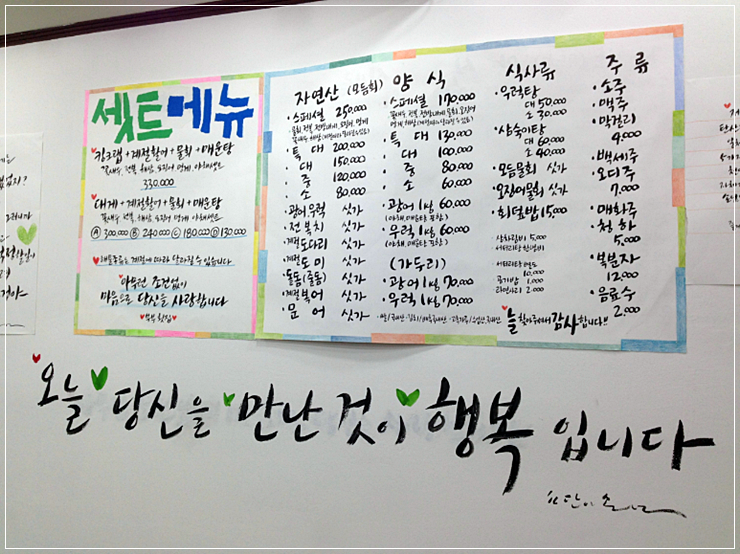 셋트메뉴
킹크랩+계절활어+물회+매운탕
330.000
대게+계절활어+물회+매운탕
Ⓐ 300.000 Ⓑ 240.000 Ⓒ 180.000 Ⓓ 130.000
해산물류는 계절에 따라 달라질 수 있습니다
아무런 조건없이
마음으로 당신을 사랑합니다
자연산 (모듬회)
·스페셜 250.000
·특대 200.000
·대 150.000
·중 120.000
·소 80.000
·광어우럭 싯가
·전복치 싯가
·계절도다리 싯가
·계절도미 싯가
·돌돔(줄돔) 싯가
·계절복어 싯가
·문어 싯가
양식
·스페셜 170.000
·특대 130.000
·대 100.000
·중 80.000
·소 60.000
·광어 1kg 60.000
·우럭 1kg 60.000
(가두리)
·광어 1kg 70.000
·우럭 1kg 70.000
식사류
·우럭탕
대 50.000
소 30.000
·삭숙이탕
대 60.000
소 40.000
·모듬물회 싯가
·오징어물회 싯가
·회덮밥 15.000
5.000
10.000
공기밥 1.000
라면사리 2.000
늘 찾아주셔서 감사합니다!!
주류
·소주
·맥주
·막걸리
4.000
·백세주
·오디주
7.000
·매화주
·청하
5.000
·복분자
12.000
·음료수
2.000
오늘 당신을 만난 것이 행복입니다